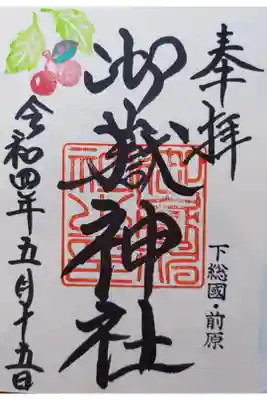 奉拝
下総國・前原
御嶽神社
令和四年五月十五日